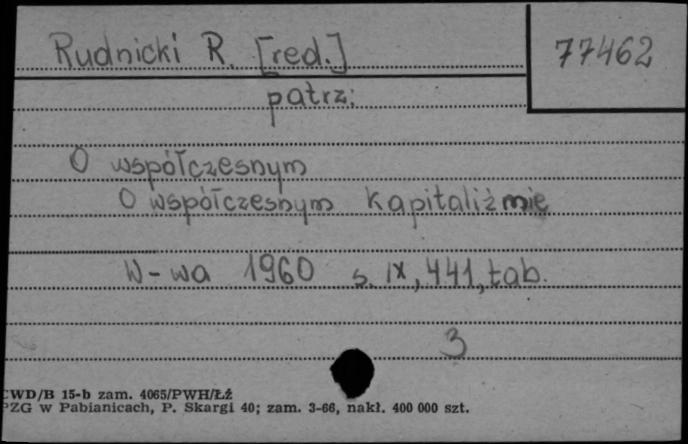 Rudnicki R. [red.] 77462
patrz:
O współczesnym
O współczesnym kapitaliźmie
W-wa 1960 s. IX, 441, tab.
3
CWD/B 15-b zam. 4065/PWH/ŁŻ
PZG w Pabianicach, P. Skargi 40; zam. 3-66, nakł. 400 000 szt.